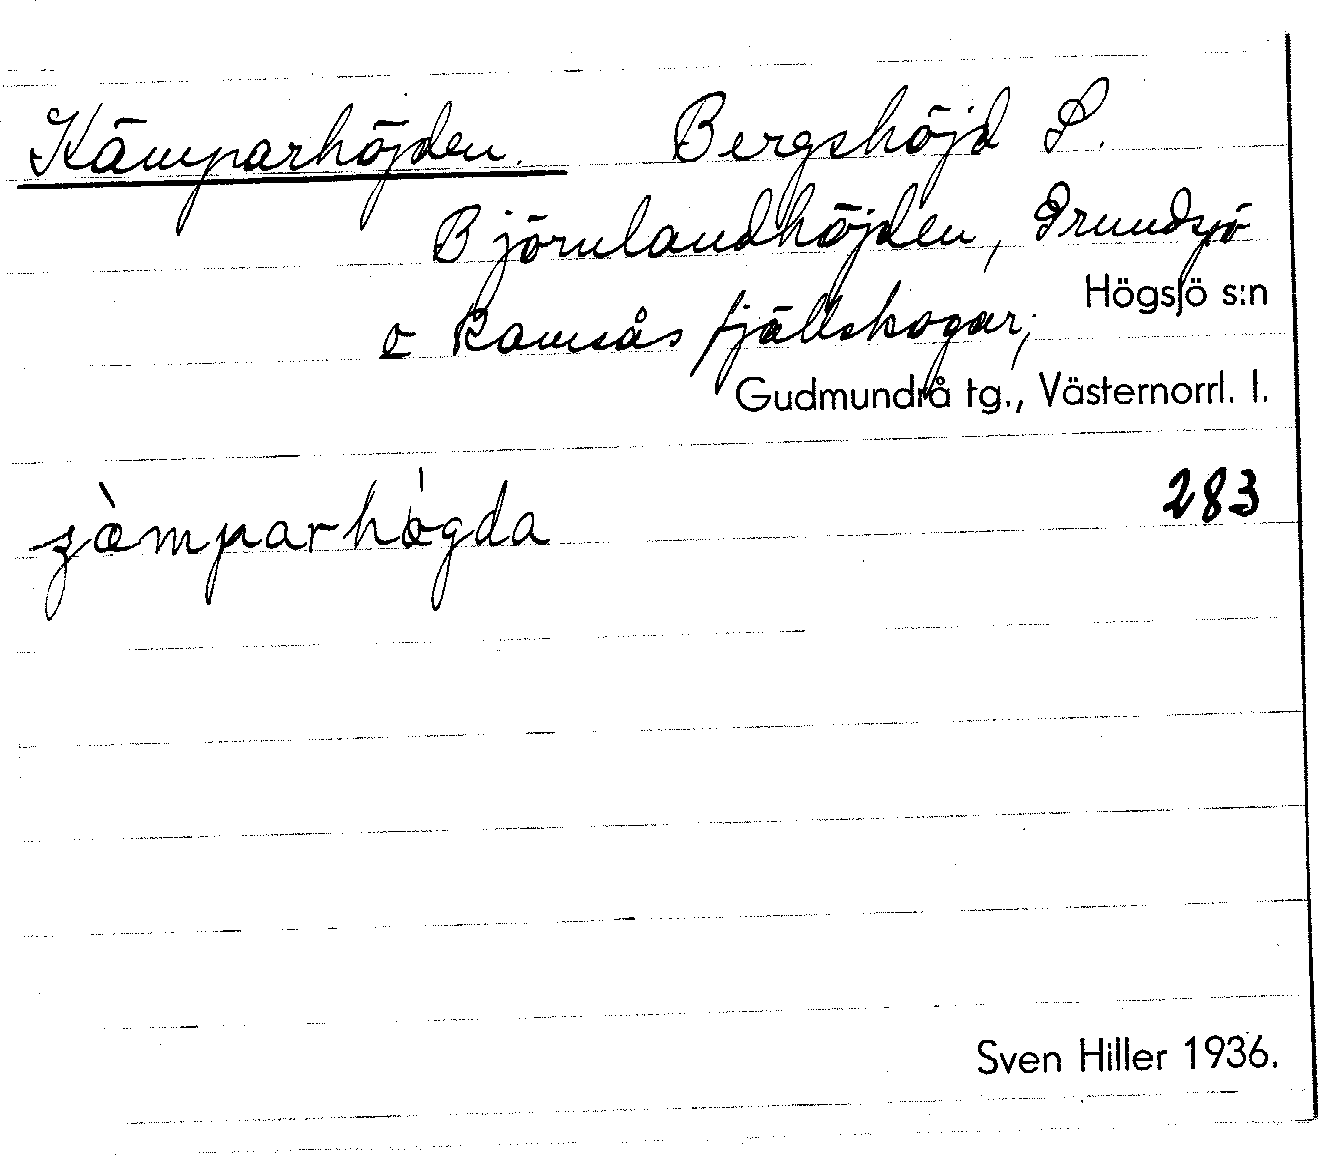 Kämparhöjden. Bergshöjd S.
Björnlandhöjden, Grundsjö
Högsjö s:n
o Ramsås fjällskogar,
Gudmundrå tg., Västernorrl. l.
283
Sven Hiller 1936.